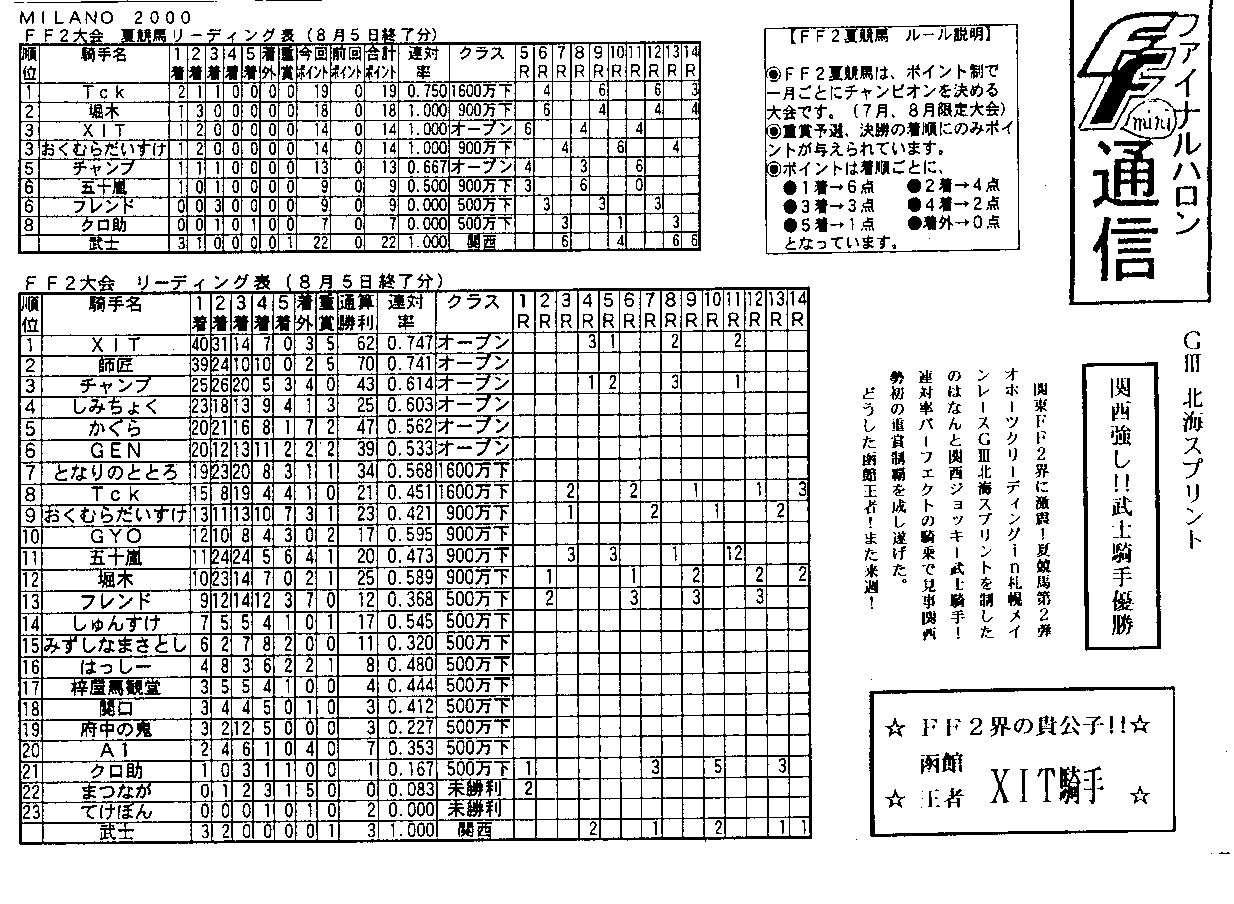 MILANO 2000
FF2大会 夏競馬リーディング表(8月5日終了分)
順位 騎手名 1着 2着 3着 4着 5着 着外 重賞 今回ポイント 前回ポイント 合計ポイント 連対率 クラス 5R 6R 7R 8R 9R 10R 11R 12R 13R 14R
1 Tck 2 1 1 0 0 0 0 19 0 19 0.750 1600万下 4 6 6 3
2 堀木 1 3 0 0 0 0 0 18 0 18 1.000 900万下 4 6 4 4
3 XIT 1 2 0 0 0 0 0 14 0 14 1.000 オープン 6 4 4
3 おくむらだいすけ 1 2 0 0 0 0 0 14 0 14 1.000 900万下 4 6 4
5 チャンプ 1 1 1 0 0 0 0 13 0 13 0.667 オープン 4 3 6
6 五十嵐 1 0 1 0 0 0 0 9 0 9 0.500 900万下 3 6 0
6 フレンド 0 0 3 0 0 0 0 9 0 9 0.000 500万下 3 3 3
8 クロ助 0 0 1 0 1 0 0 7 0 7 0.000 500万下 3 1 3
武士 3 1 0 0 0 0 1 22 0 22 1.000 関西 6 4 6 6
【FF2夏競馬 ルール説明】
◉FF2夏競馬は、ポイント制で
一月ごとにチャンピオンを決める
大会です。(7月、8月限定大会)
◉重賞予選、決勝の着順にのみポイ
ントが与えられています。
◉ポイントは着順ごとに、
●1着→6点 ●2着→4点
●3着→3点 ●4着→2点
●5着→1点 ●着外→0点
となっています。
FF mini
ファイナルハロン
通信
FF2大会 リーディング表(8月5日終了分)
順位 騎手名 1着 2着 3着 4着 5着 着外 重賞 通算勝利 連対率 クラス 1R 2R 3R 4R 5R 6R 7R 8R 9R 10R 11R 12R 13R 14R
1 XIT 40 31 14 7 0 3 5 62 0.747 オープン 3 1 2 2
2 師匠 39 24 10 10 0 2 5 70 0.741 オープン
3 チャンプ 25 26 20 5 3 4 0 43 0.614 オープン 1 2 3 1
4 しみちょく 23 18 13 9 4 1 3 25 0.603 オープン
5 かぐら 20 21 16 8 1 7 2 47 0.562 オープン
6 GEN 20 12 13 11 2 2 2 39 0.533 オープン
7 となりのととろ 19 23 20 8 3 1 1 34 0.568 1600万下
8 Tck 15 8 19 4 4 1 0 21 0.451 1600万下 2 2 1 1 3
9 おくむらだいすけ 13 11 13 10 7 3 1 23 0.421 900万下 1 2 1 2
10 GYO 12 10 8 4 3 0 2 17 0.595 900万下
11 五十嵐 11 24 24 5 6 4 1 20 0.473 900万下 3 3 1 12
12 堀木 10 23 14 7 0 2 1 25 0.589 900万下 1 1 2 2 2
13 フレンド 9 12 14 12 3 7 0 12 0.368 500万下 2 3 3 3
14 しゅんすけ 7 5 5 4 1 0 1 17 0.545 500万下
15 みずしなまさとし 6 2 7 8 2 0 0 11 0.320 500万下
16 はっしー 4 8 3 6 2 2 1 8 0.480 500万下
17 梓屋馬観堂 3 5 5 4 1 0 0 4 0.444 500万下
18 関口 3 4 4 5 0 1 0 3 0.412 500万下
19 府中の鬼 3 2 12 5 0 0 0 3 0.227 500万下
20 A1 2 4 6 1 0 4 0 7 0.353 500万下
21 クロ助 1 0 3 1 1 0 0 1 0.167 500万下 1 3 5 3
22 まつなが 0 1 2 3 1 5 0 0 0.083 未勝利 2
23 てけぽん 0 0 0 1 0 1 0 2 0.000 未勝利
武士 3 2 0 0 0 0 1 3 1.000 関西 2 1 2 1 1
GⅢ 北海スプリント
関西強し!!武士騎手優勝
関東FF2界に激震!夏競馬第2弾
オホーツクリーディングin札幌メイ
ンレースGⅢ北海スプリントを制した
のはなんと関西ジョッキー武士騎手!
連対率パーフェクトの騎乗で見事関西
勢初の重賞制覇を成し遂げた。
どうした函館王者!また来週!
☆ FF2界の貴公子!!☆
函館
☆ 王者 XIT騎手 ☆